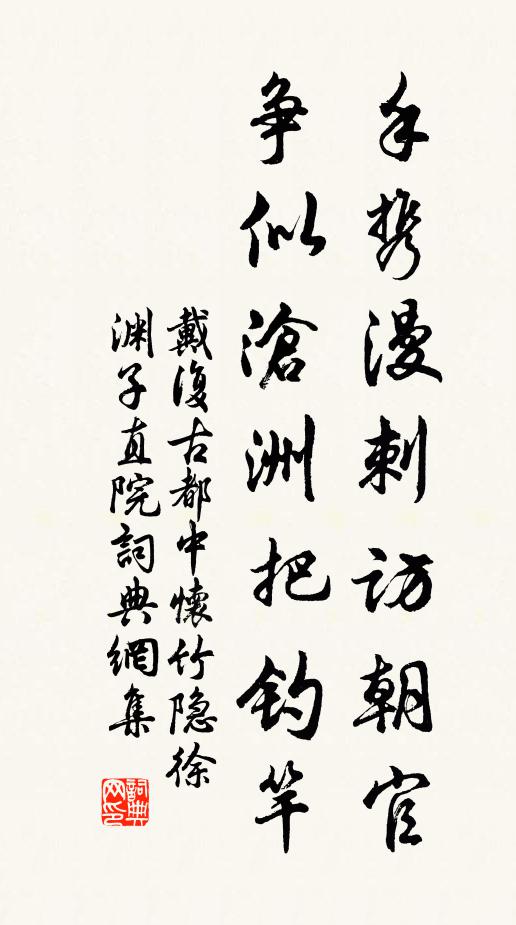 手携漫刺访朝官
争似滄洲把钓竿
戴復古都中懷竹隐徐
渊子直院詞典網集
詞典网印